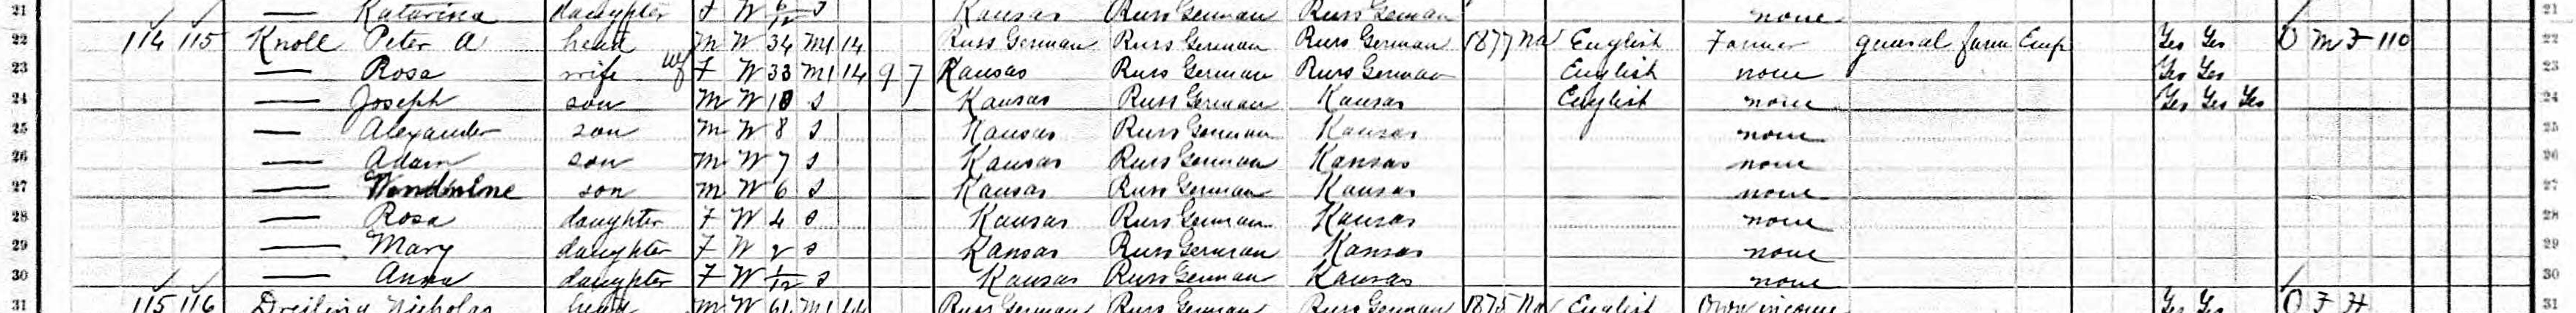 21 Katarina daughter F W 6/12 S Kansas Russ German Russ German none 21
22 114 115 Knoll Peter A head M W 34 M1 14 Russ German Russ German Russ German 1877 Na English Farmer general farm Emp Yes Yes O M F 110 22
23 — Rosa wife wf F W 33 M1 14 9 7 Kansas Russ German Russ German English none Yes Yes 23
24 — Joseph son M W 10 S Kansas Russ German Kansas English none Yes Yes Yes 24
25 — Alexander son M W 8 S Kansas Russ German Kansas none 25
26 — Adam son M W 7 S Kansas Russ German Kansas none 26
27 — son M W 6 S Kansas Russ German Kansas none 27
28 — Rosa daughter F W 4 S Kansas Russ German Kansas none 28
29 — Mary daughter F W 2 S Kansas Russ German Kansas none 29
30 — Anna daughter F W 1/12 S Kansas Russ German Kansas none 30
31 115 116 Dreiling Nicholas head M W M1 44 Russ German Russ German Russ German 1875 Na English Own income Yes Yes O F H 31